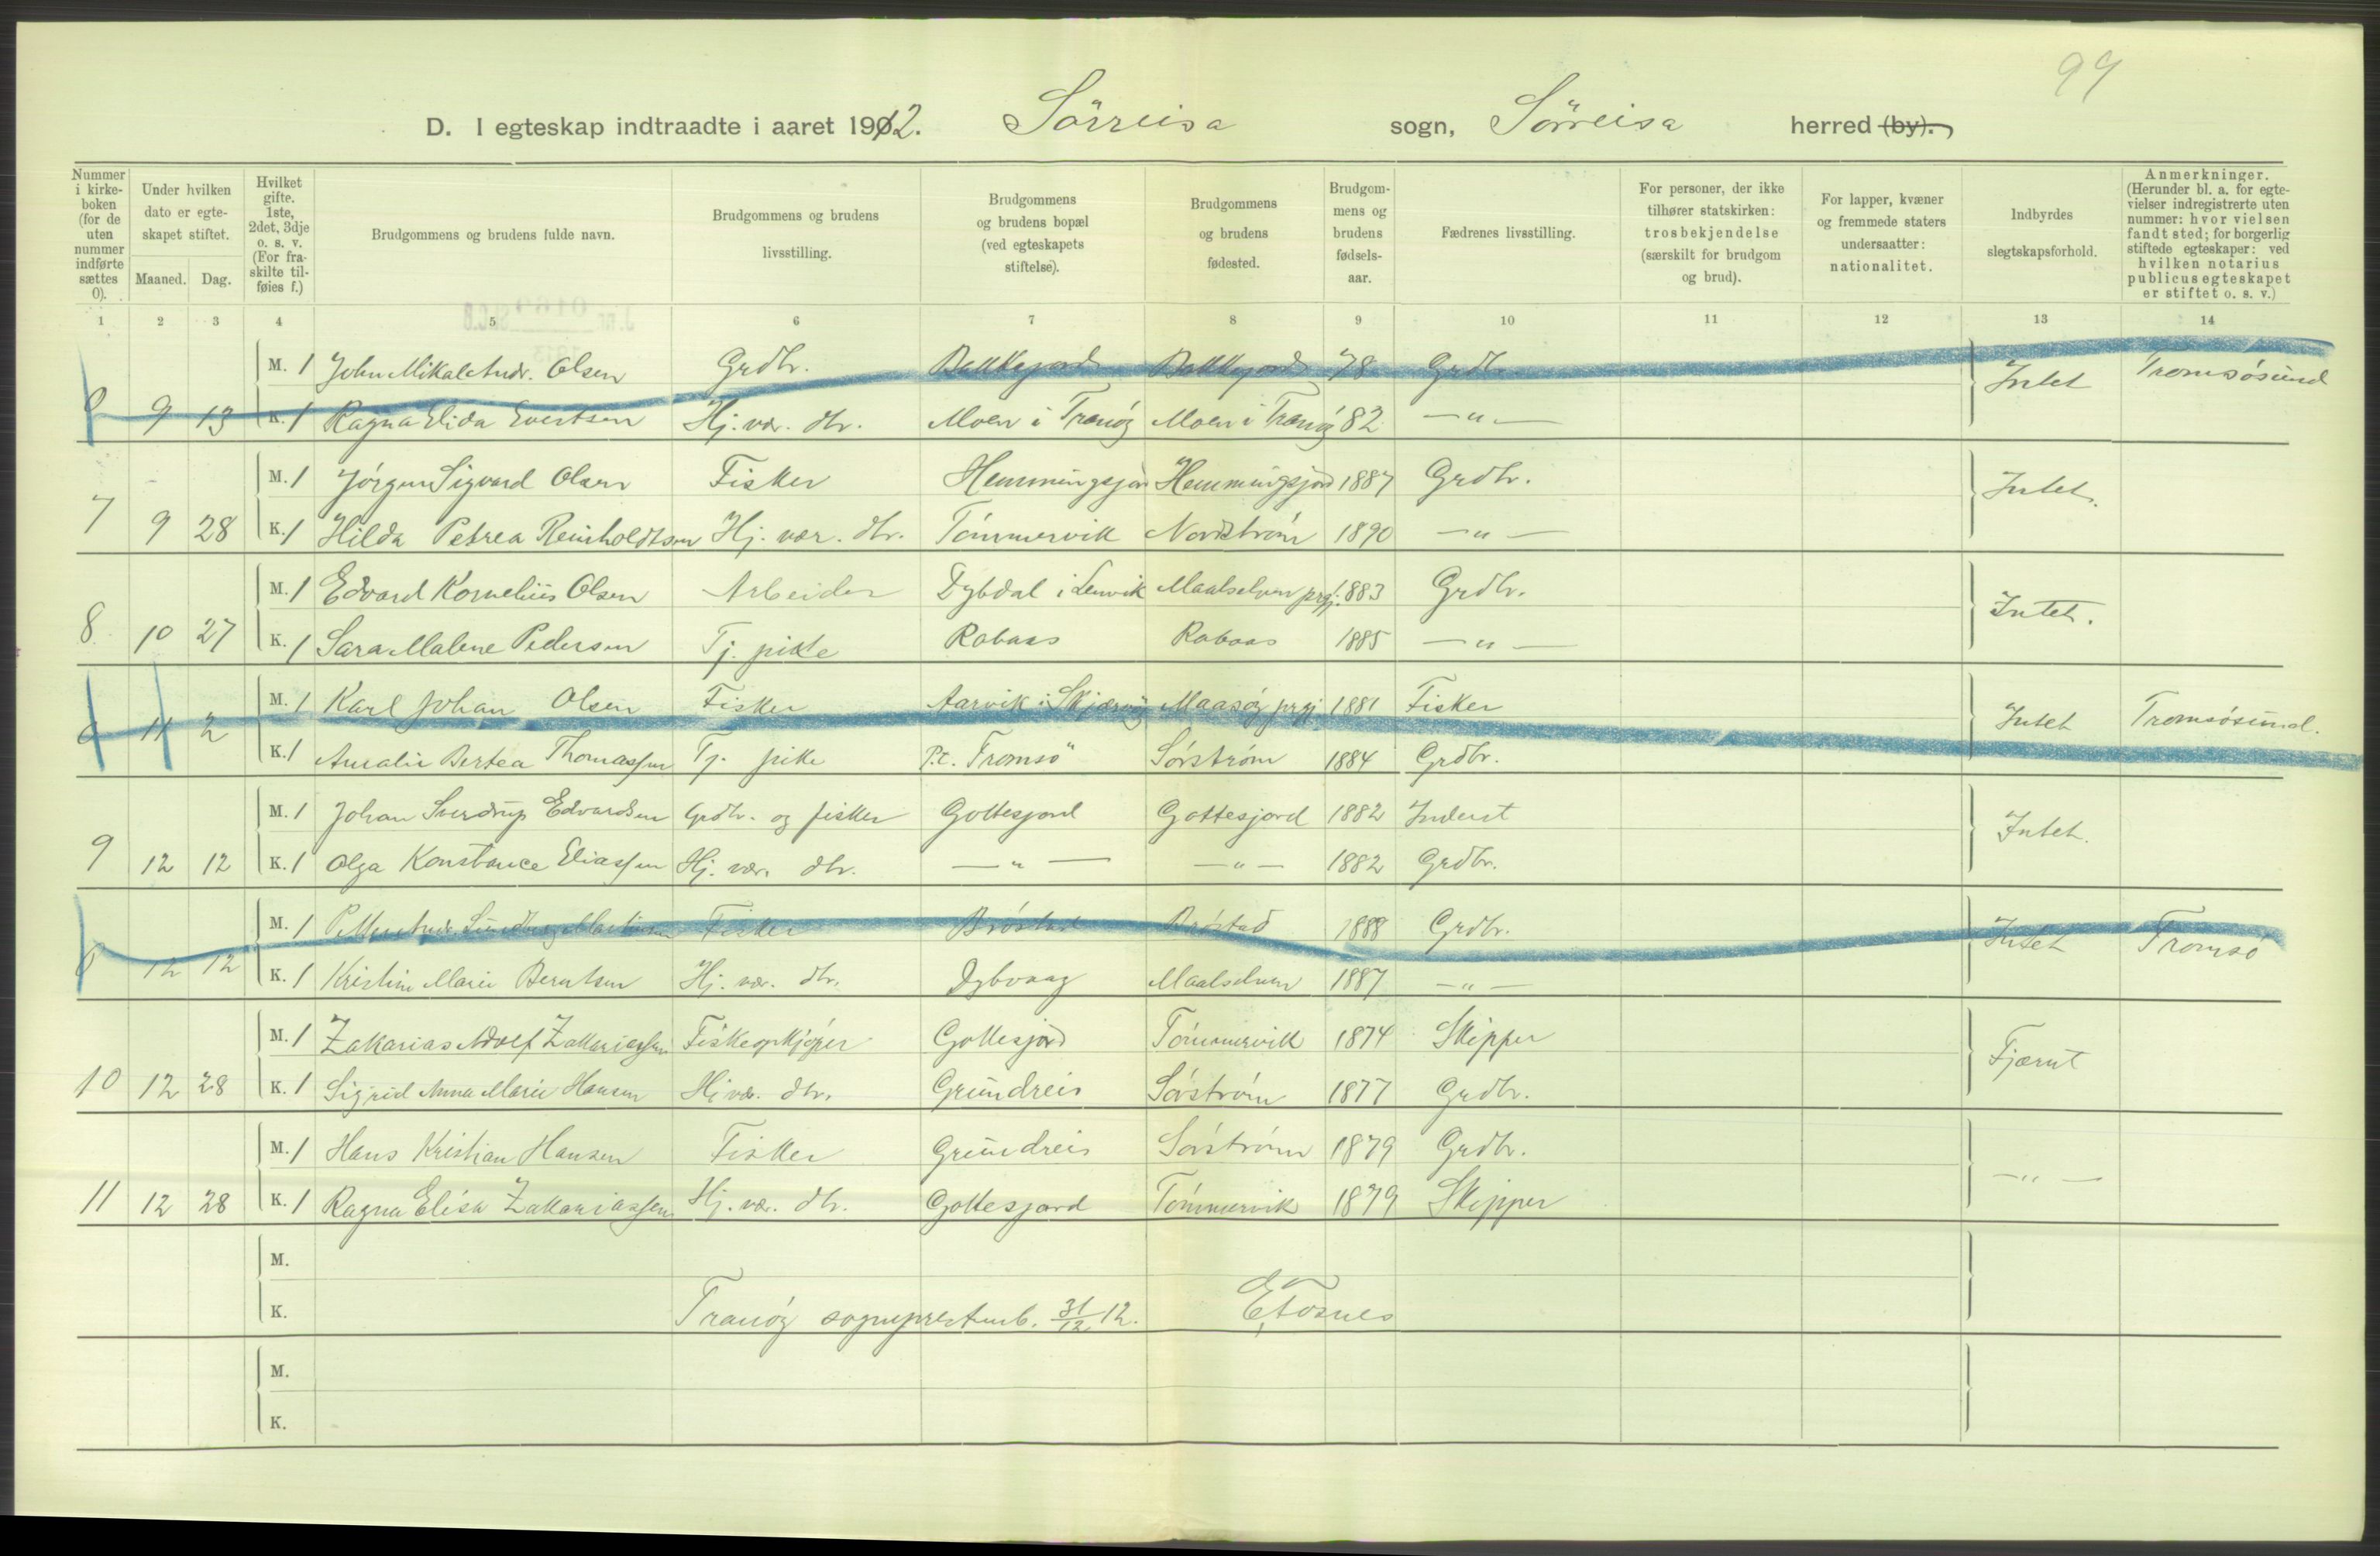 99
D. I egteskap indtraadte i aaret 1912. Sörreisa sogn, Sörreisa herred (by).
Nummer i kirke-boken (for de uten nummer indførte sættes 0). Under hvilken dato er egte-skapet stiftet. Maaned. Dag. Hvilket gifte. 1ste, 2det, 3dje o. s. v. (For fra-skilte til-føies f.) Brudgommens og brudens fulde navn. Brudgommens og brudens livsstilling. Brudgommens og brudens bopæl (ved egteskapets stiftelse). Brudgommens og brudens fødested. Brudgom-mens og brudens fødsels-aar. Fædrenes livsstilling. For personer, der ikke tilhører statskirken: trosbekjendelse (særskilt for brudgom og brud). For lapper, kvæner og fremmede staters undersaatter: nationalitet. Indbyrdes slegtskapsforhold. Anmerkninger. (Herunder bl. a. for egte-vielser indregistrerte uten nummer: hvor vielsen fandt sted; for borgerlig stiftede egteskaper: ved hvilken notarius publicus egteskapet er stiftet o. s. v.)
1 2 3 4 5 6 7 8 9 10 11 12 13 14
M. 1 John Mikal Andr. Olsen Grdbr. Bakkejord Bakkejord 78 Grdbr. Intet Tromsøsund
0 9 13 K. 1 Ragna Elida Evertsen Hj. vær. dtr. Moen i Tranöy Moen i Tranöy 82 — " —
M. 1 Jörgen Sigvard Olsen Fisker Hemmingsjord Hemmingsjord 1887 Grdbr. Intet.
7 9 28 K. 1 Hilda Petrea Reinholdtsen Hj. vær. dtr. Tömmervik Nordström 1890 — " —
M. 1 Edvard Kornelius Olsen Arbeider Dybdal i Lenvik Maalselven prgj. 1883 Grdbr. Intet.
8. 10 27 K. 1 Sara Malene Pedersen Tj. pike Rabaas Rabaas 1885 — " —
M. 1 Karl Johan Olsen Fisker Aarvik i Skjærvöy Maasöy prgj. 1881 Fisker Intet Tromsösund.
0 11 2 K. 1 Amalie Bertea Thomassen Tj. pike P.t. Tromsö Sörström 1884 Grdbr.
M. 1 Johan Sverdrup Edvardsen Grdbr. og fisker Gottesjord Gottesjord 1882 Inderst Intet.
9 12 12 K. 1 Olga Konstance Eliassen Hj. vær. dtr. — " — — " — 1882 Grdbr.
M. 1 Petter Andr. Lundberg Martinsen Fisker Bröstad Bröstad 1888 Grdbr. Intet Tromsö
0 12 12 K. 1 Kristine Marie Berntsen Hj. vær. dtr. Dybvaag Maalselven 1887 — " —
M. 1 Zakarias Adolf Zakariassen Fiskeopkjöper Gottesjord Tömmervik 1874 Skipper Fjærnt
10 12 28 K. 1 Sigrid Anna Marie Hansen Hj vær. dtr. Grundreis Sörström 1877 Grdbr.
M. 1 Hans Kristian Hansen Fisker Grundreis Sörström 1879 Grdbr. — " —
11 12 28 K. 1 Ragna Elisa Zakariassen Hj. vær. dtr. Gottesjord Tömmervik 1879 Skipper
M.
K. Tranöy sogneprestemb. 31/12 12. E, Fosnes
M.
K.